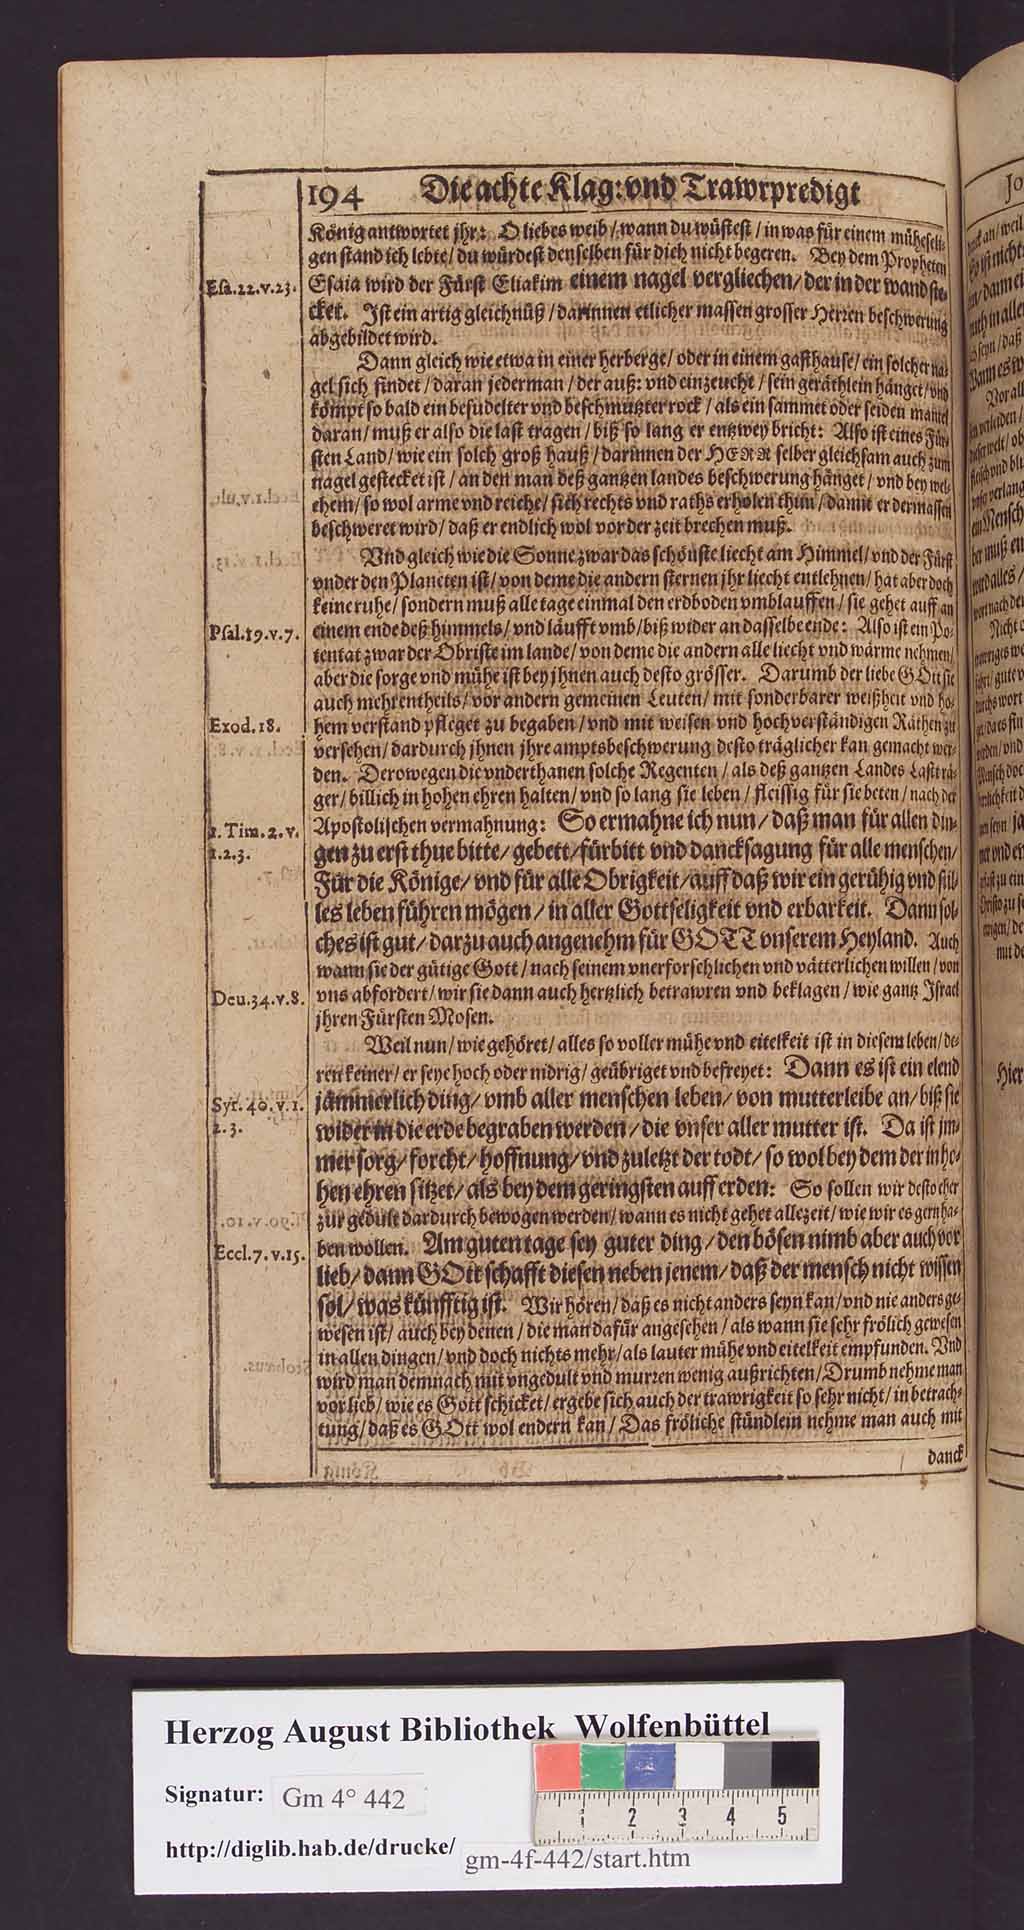 194 Die achte Klag: vnd Trawrpredigt
König antwortet jhr: O liebes weib / wann du wüstest / in was für einem müheseli-
gen stand ich lebte / du würdest denselben für dich nicht begeren. Bey dem Propheten
Esa.22.v.23.
Esaia wird der Fürst Eliakim einem nagel vergliechen / der in der wand ste-
cket. Ist ein artig gleichnüß / darinnen etlicher massen grosser Herren beschwerung
abgebildet wird.
Dann gleich wie etwa in einer herberge / oder in einem gasthause / ein solcher na-
gel sich findet / daran jederman / der auß: vnd einzeucht / sein geräthlein hänget / vnd
kömpt so bald ein besudelter vnd beschmutzter rock / als ein sammet oder seiden mantel
daran / muß er also die last tragen / biß so lang er entzwey bricht: Also ist eines Für-
sten Land / wie ein solch groß hauß / darinnen der HERR selber gleichsam auch zum
nagel gestecket ist / an den man deß gantzen landes beschwerung hänget / vnd bey wel-
chem / so wol arme vnd reiche / sich rechts vnd raths erholen thun / damit er dermassen
beschweret wird / daß er endlich wol vor der zeit brechen muß.
Vnd gleich wie die Sonne zwar das schönste liecht am Himmel / vnd der Fürst
vnder den Planeten ist / von deme die andern sternen jhr liecht entlehnen / hat aber doch
keine ruhe / sondern muß alle tage einmal den erdboden vmblauffen / sie gehet auff an
Psal.19.v.7.
einem ende deß himmels / vnd läufft vmb / biß wider an dasselbe ende: Also ist ein Po-
tentat zwar der Obriste im lande / von deme die andern alle liecht vnd wärme nehmen /
aber die sorge vnd mühe ist bey jhnen auch desto grösser. Darumb der liebe GOtt sie
auch mehrentheils / vor andern gemeinen Leuten / mit sonderbarer weißheit vnd ho-
Exod.18.
hem verstand pfleget zu begaben / vnd mit weisen vnd hochverständigen Räthen zu
versehen / dardurch jhnen jhre amptsbeschwerung desto träglicher kan gemacht wer-
den. Derowegen die vnderthanen solche Regenten / als deß gantzen Landes Lasträ-
ger / billich in hohen ehren halten / vnd so lang sie leben / fleissig für sie beten / nach der
1. Tim.2.v.
1.2.3.
Apostolischen vermahnung: So ermahne ich nun / daß man für allen din-
gen zu erst thue bitte / gebett / fürbitt vnd dancksagung für alle menschen /
Für die Könige / vnd für alle Obrigkeit / auff daß wir ein gerühig vnd stil-
les leben führen mögen / in aller Gottseligkeit vnd erbarkeit. Dann sol-
ches ist gut / darzu auch angenehm für GOTT vnserem Heyland. Auch
wann sie der gütige Gott / nach seinem vnerforschlichen vnd vätterlichen willen / von
Deu.34.v.8.
vns abfordert / wir sie dann auch hertzlich betrawren vnd beklagen / wie gantz Israel
jhren Fürsten Mosen.
Weil nun / wie gehöret / alles so voller mühe vnd eitelkeit ist in diesem leben / de-
ren keiner / er seye hoch oder nidrig / geübriget vnd befreyet: Dann es ist ein elend
Syr.40.v.1.
2.3.
jämmerlich ding / vmb aller menschen leben / von mutterleibe an / biß sie
wider in die erde begraben werden / die vnser aller mutter ist. Da ist jm-
mer sorg / forcht / hoffnung / vnd zuletzt der todt / so wol bey dem der in ho-
hen ehren sitzet / als bey dem geringsten auff erden: So sollen wir desto eher
zur gedult dardurch bewogen werden / wann es nicht gehet allezeit / wie wir es gern ha-
Eccl.7.v.15.
ben wollen. Am guten tage sey guter ding / den bösen nimb aber auch vor
lieb / dann GOtt schafft diesen neben jenem / daß der mensch nicht wissen
sol / was künfftig ist. Wir hören / daß es nicht anders seyn kan / vnd nie anders ge-
wesen ist / auch bey denen / die man dafür angesehen / als wann sie sehr frölich gewesen
in allen dingen / vnd doch nichts mehr / als lauter mühe vnd eitelkeit empfunden. Vnd
wird man demnach mit vngedult vnd murren wenig außrichten / Drumb nehme man
vor lieb / wie es Gott schicket / ergebe sich auch der trawrigkeit so sehr nicht / in betrach-
tung / daß es GOtt wol endern kan / Das fröliche stündlein nehme man auch mit
danck
Herzog August Bibliothek Wolfenbüttel
Signatur: Gm 4° 442
http://diglib.hab.de/drucke/ gm-4f-442/start.htm
1 2 3 4 5